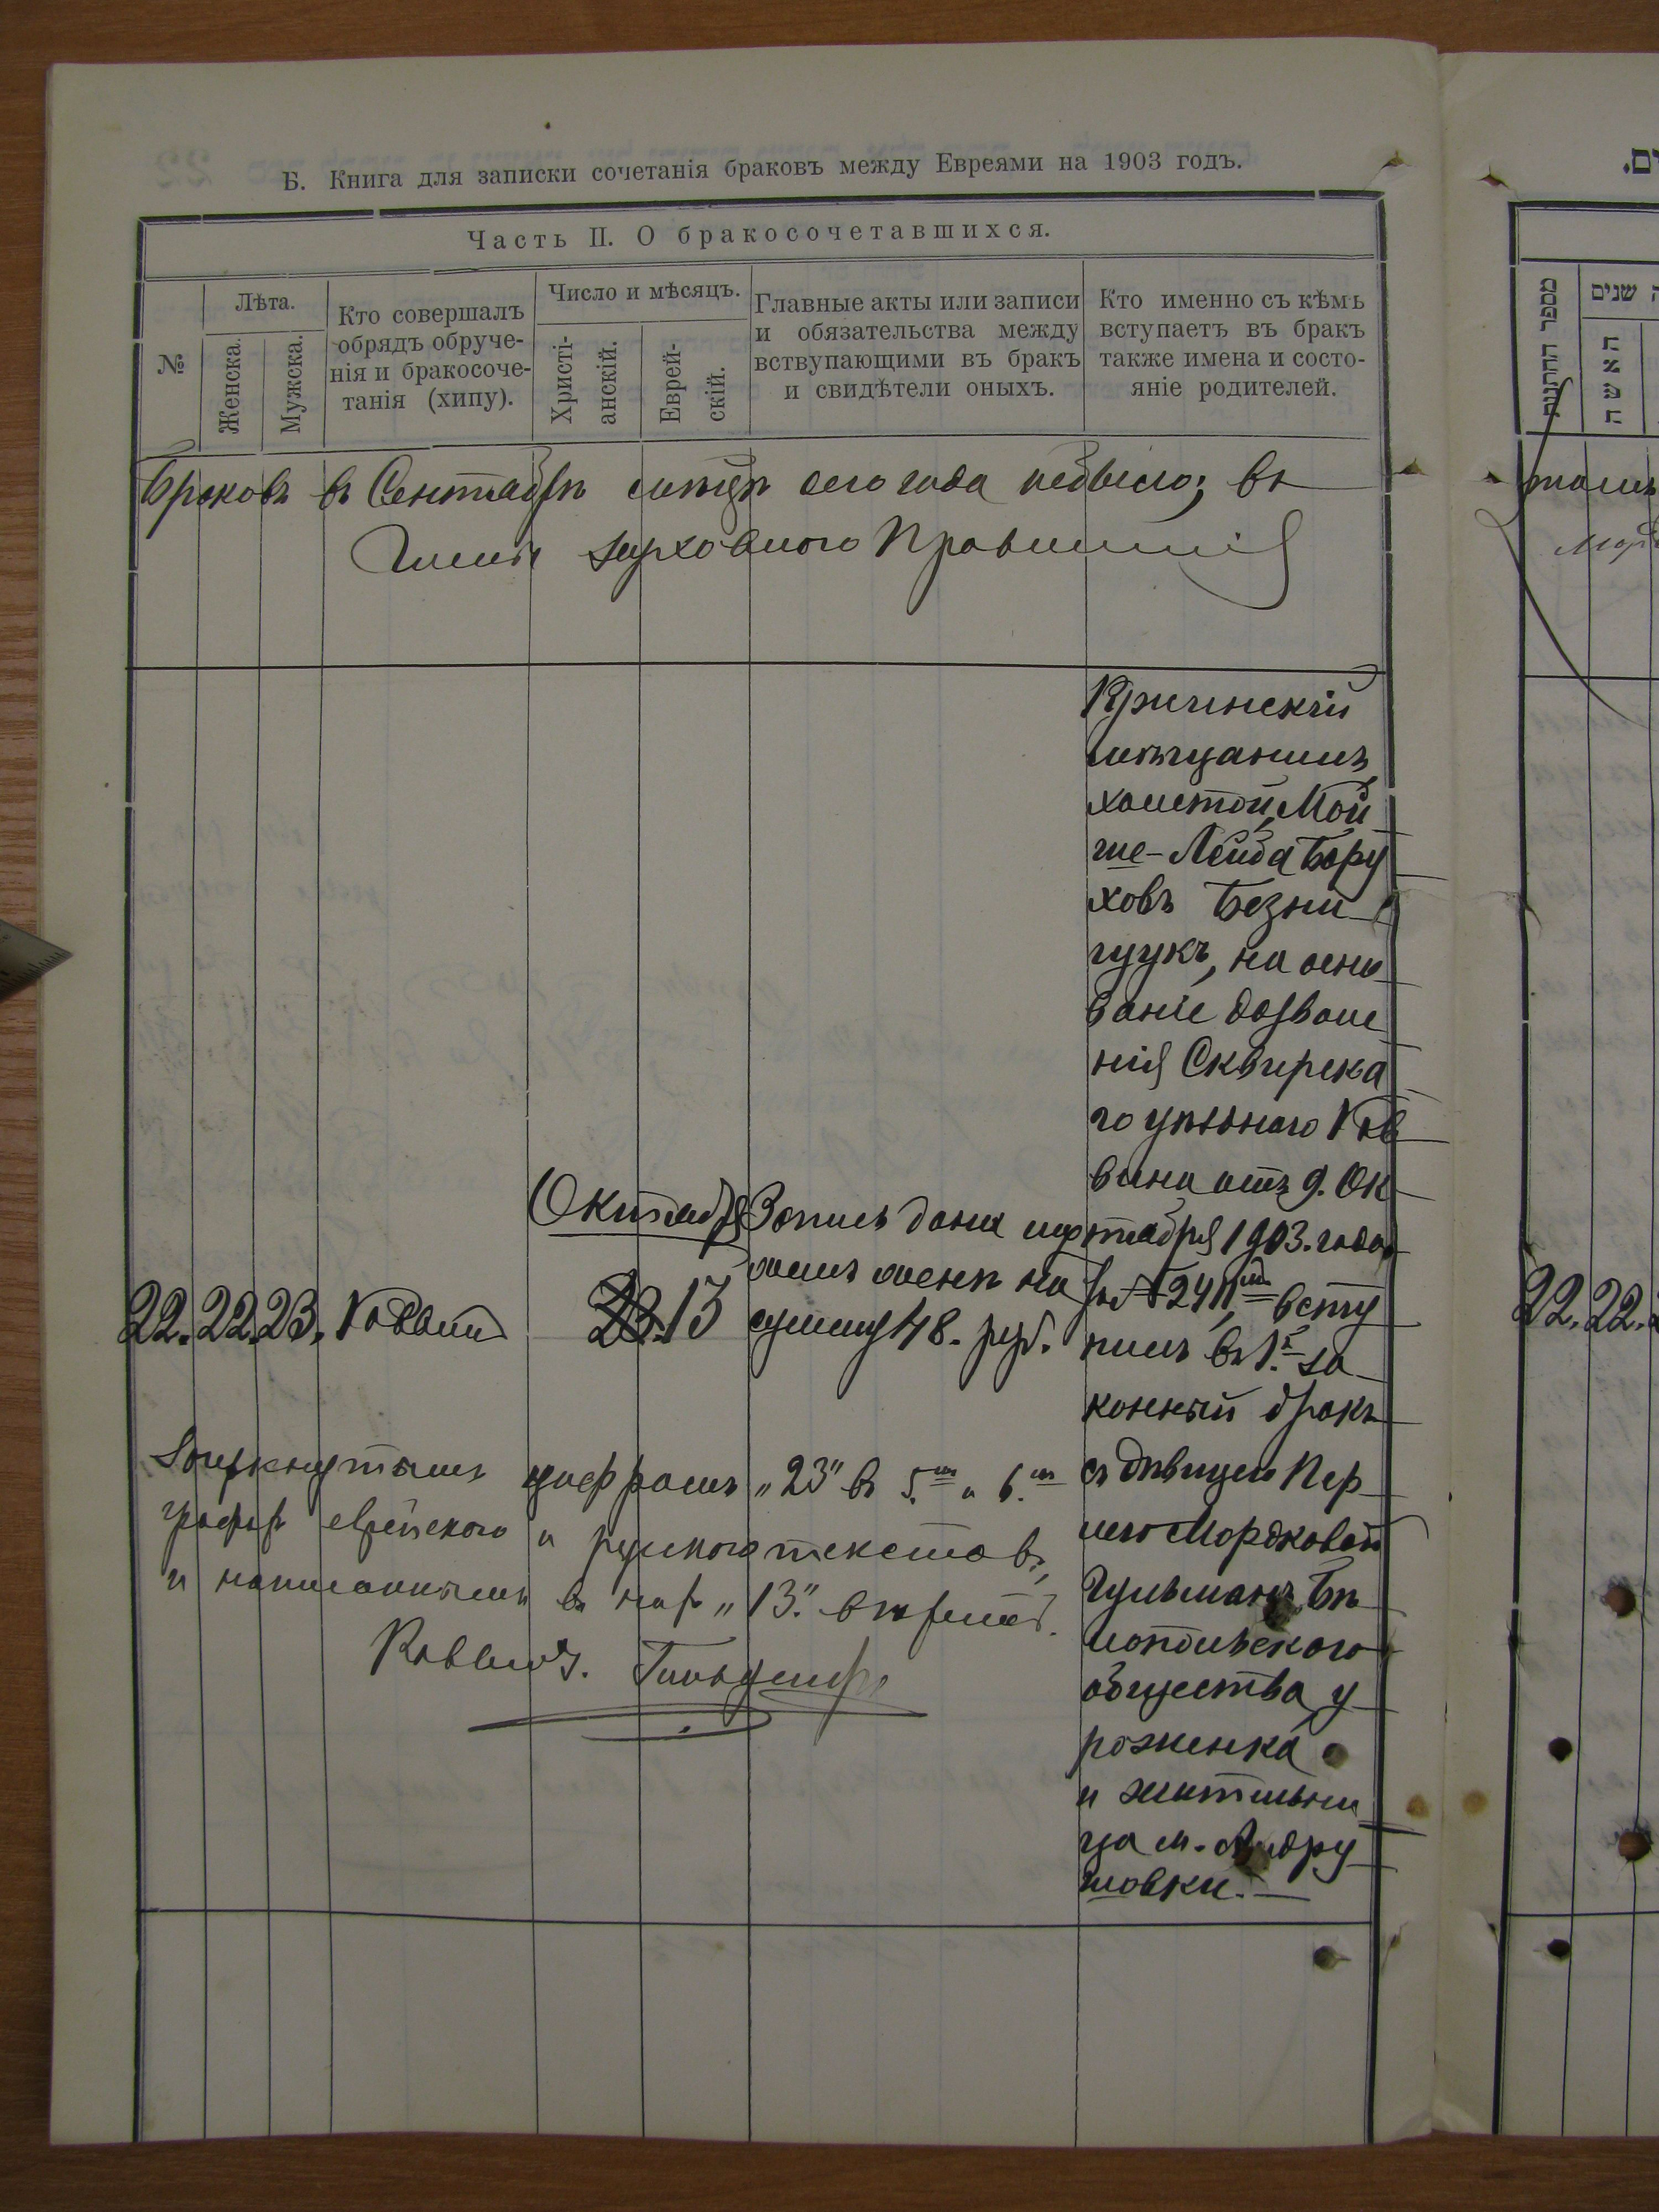 Б. Книга для записки сочетанія браковъ между Евреями на 1903 годъ.
Часть II. О бракосочетавшихся.
№
Лѣта.
Женска.
Мужска.
Кто совершалъ
обрядъ обруче-
нія и бракосоче-
танія (хипу).
Число и мѣсяцъ.
Христі-
анскій.
Еврей-
скій.
Главные акты или записи
и обязательства между
вствупающими въ бракъ
и свидѣтели оныхъ.
Кто именно съ кѣмъ
вступаетъ въ бракъ
также имена и состо-
яніе родителей.
Браковъ въ Сентябрѣ мѣсяцѣ сего года небыло; въ
Правленія
22. 22 23. Раввинъ
Октября
23. 13
Запись дана
на
сумму 48. руб.
мѣщанинъ
холостой, Мой
ше-Лейба Бору
ховъ Безни
щукъ, на осно
ваніе дозволе
нія Сквирска
го уѣзного Рав
вина отъ 9. Ок
тября 1903. года
за № 2411, всту
пилъ въ 1.й за
конный бракъ
съ дѣвицею Пер
лею Мордковой
Гульманъ, Бѣ
лопольского
общества, у
роженка
и жительни
ца м. Андру
шовки.
Зачеркнутымъ цифрамъ „23" въ 5.ой и 6.ой
графѣ еврейского и русского текстовъ,
и написаннымъ въ низѣ „13." вѣрить.
Раввинъ.
ים.
מספר החתונות
שנים
האשה
22. 22.